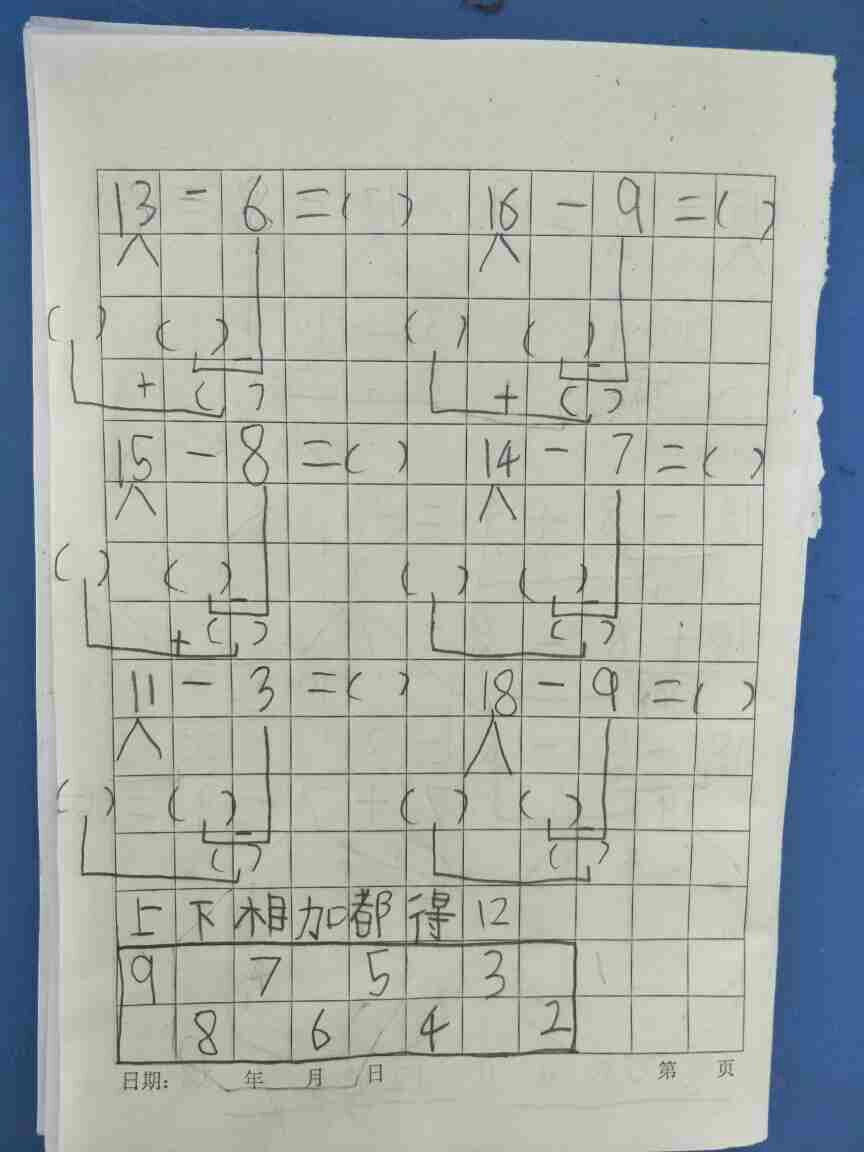 13 - 6 = ( ) 16 - 9 = ( )
( ) ( ) - ( ) ( ) -
+ ( ) + ( )
15 - 8 = ( ) 14 - 7 = ( )
( ) ( ) - ( ) ( ) -
+ ( ) ( )
11 - 3 = ( ) 18 - 9 = ( )
( ) ( ) - ( ) ( ) -
( ) ( )
上下相加都得12
9 7 5 3
8 6 4 2
日期: 年 月 日 第 页